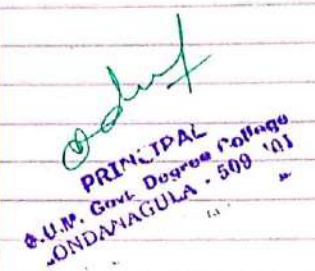 PRINCIPAL
G.U.M. Govt. Degree College
KONDANAGULA - 509 401